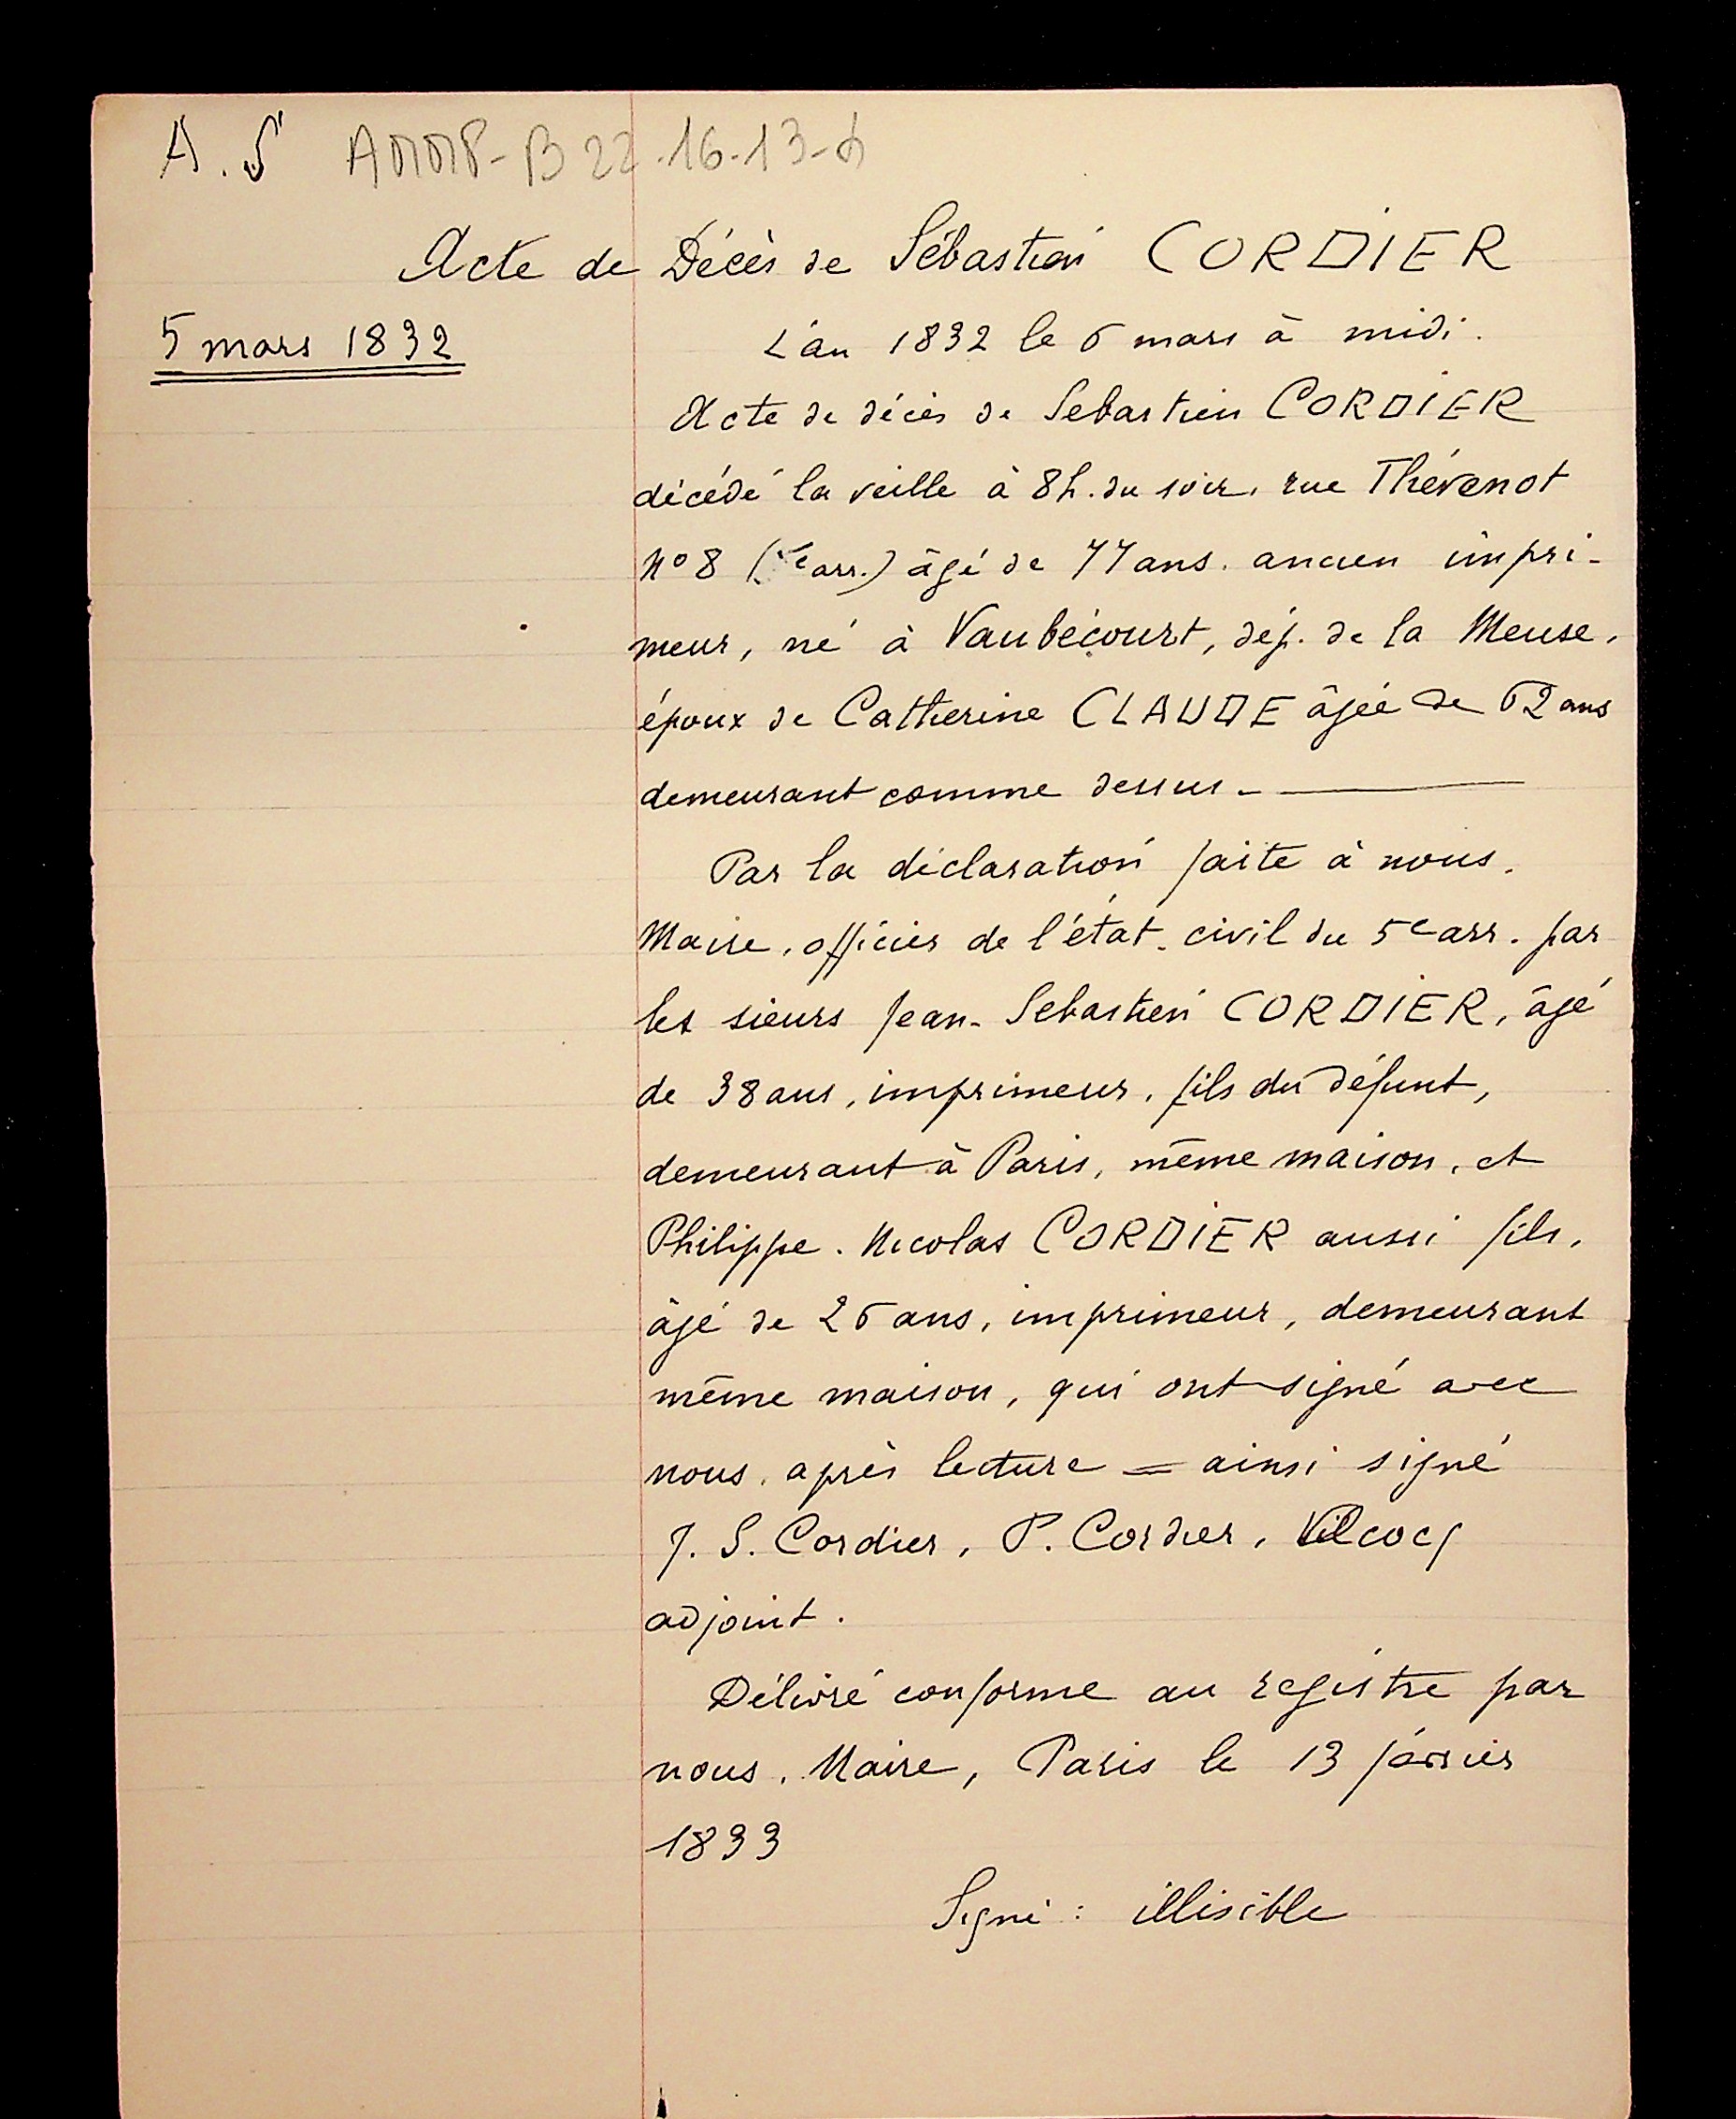 A. S AMMP-B 22-16-13-
Acte de Décès de Sébastien CORDIER
5 mars 1832
L'an 1832 le 6 mars à midi.
Acte de décès de Sébastien CORDIER
décédé la veille à 8h. du soir, rue Thévenot
N° 8 (5e arr.) âgé de 77 ans. ancien impri-
meur, né à Vaubécourt, dép. de la Meuse,
époux de Catherine CLAUDE âgée de 62 ans
demeurant comme dessus.
Par la déclaration faite à nous,
Maire, officier de l'état-civil du 5e arr. par
les sieurs Jean-Sebastien CORDIER, âgé
de 38 ans, imprimeur, fils du défunt,
demeurant à Paris, même maison, et
Philippe-Nicolas CORDIER aussi fils,
âgé de 26 ans, imprimeur, demeurant
même maison, qui ont signé avec
nous, après lecture = ainsi signé
J. S. Cordier, P. Cordier, Vilcocq
adjoint.
Délivré conforme au registre par
nous, Maire, Paris le 13 janvier
1833
Signé : illisible